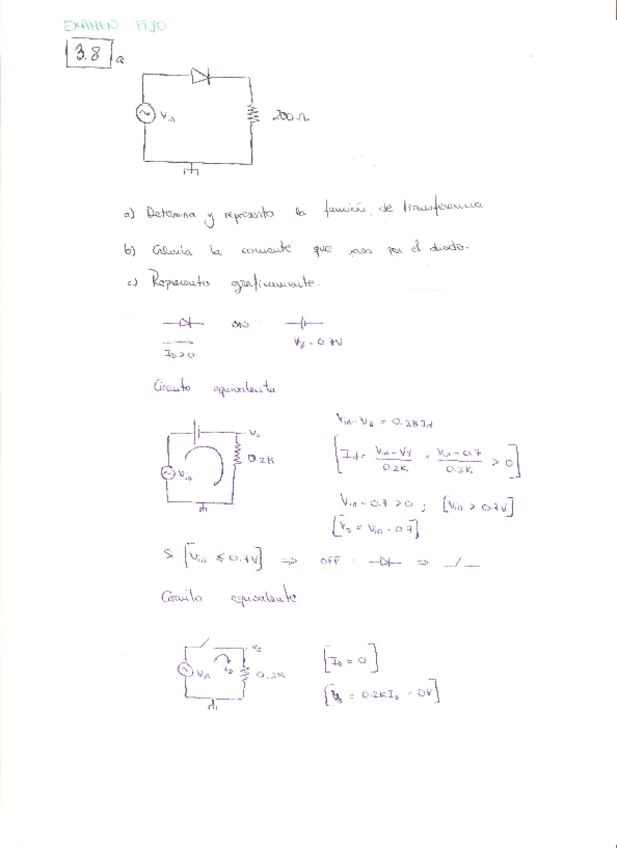 EXAMEN FIJO
3.8 a
Vin
200Ω
a) Determina y representa la función de transferencia
b) Calcula la corriente que pasa por el diodo.
c) Representa graficamente.
ON :
ID > 0
Vγ = 0.7V
Circuito equivalente
Vo
Vin
0.2K
Vin - Vγ = 0.2K Id
[Id = Vin - Vγ / 0.2K = Vin - 0.7 / 0.2K > 0]
Vin - 0.7 > 0 ; [Vin > 0.7V]
[Vo = Vin - 0.7]
Si [Vin ≤ 0.7V] ⇒ OFF : ⇒
Circuito equivalente
Vo
Vin
ID
0.2K
[ID = 0]
[Vo = 0.2K ID = 0V]